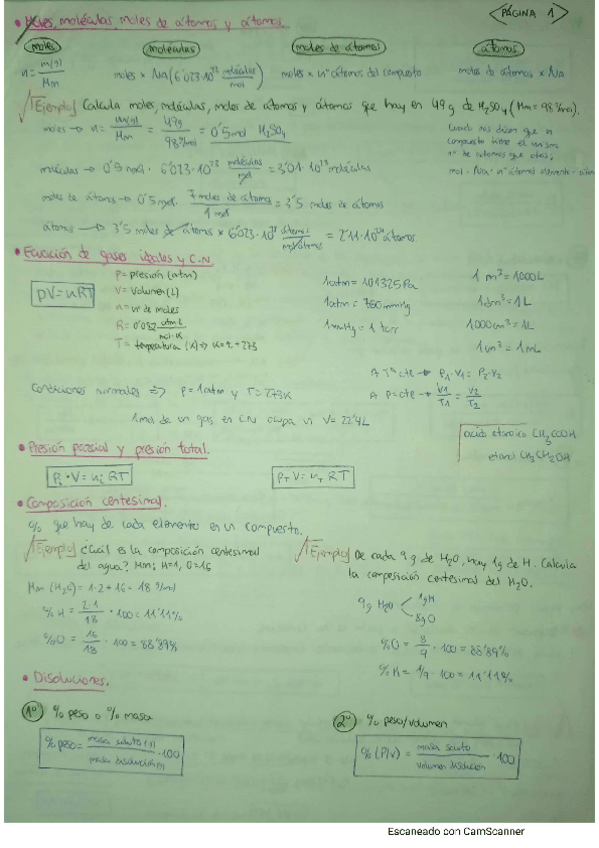 PÁGINA 1
• Moles, moléculas, moles de átomos y átomos.
moles
moléculas
moles de átomos
átomos
n = m(g) / Mm
moles × NA (6'023·10²³ moléculas/mol)
moles × nº átomos del compuesto
moles de átomos × NA
Ejemplo) Calcula moles, moléculas, moles de átomos y átomos que hay en 49 g de H₂SO₄ (Mm = 98 g/mol).
moles → n = m(g)/Mm = 49g / 98g/mol = 0'5 mol H₂SO₄
moléculas → 0'5 mol · 6'023·10²³ moléculas/mol = 3'01·10²³ moléculas
moles de átomos → 0'5 mol · 7 moles de átomos / 1 mol = 3'5 moles de átomos
átomos → 3'5 moles de átomos × 6'023·10²³ átomos/mol átomos = 2'11·10²⁴ átomos.
Cuando nos dicen que un
compuesto tiene el mismo
nº de átomos que otro;
• Ecuación de gases ideales y C.N.
pV = nRT
P = presión (atm)
V = volumen (L)
n = nº de moles
R = 0'082 atm·L / mol·K
T = temperatura (K) => K = ºC + 273
1atm = 101325 Pa
1atm = 760 mmHg
1mmHg = 1 torr
1 m³ = 1000 L
1dm³ = 1L
1000 cm³ = 1L
1 cm³ = 1 mL
A Tª cte → P₁·V₁ = P₂·V₂
A P = cte → V1/T1 = V2/T2
Condiciones normales => P = 1atm y T = 273K
1mol de un gas en C.N ocupa un V = 22'4L
ácido etanoico CH₃COOH
etanol CH₃CH₂OH
• Presión parcial y presión total.
Pi · V = ni RT
PT V = nT RT
• Composición centesimal.
% que hay de cada elemento en un compuesto.
Ejemplo) ¿Cuál es la composición centesimal
del agua? Mm: H=1, O=16
Mm (H₂O) = 1·2 + 16 = 18 g/mol
% H = 2·1 / 18 · 100 = 11'11%
% O = 16 / 18 · 100 = 88'89%
Ejemplo) De cada 9 g de H₂O, hay 1g de H. Calcula
la composición centesimal del H₂O.
9g H₂O
1g H
8g O
% O = 8/9 · 100 = 88'89%
% H = 1/9 · 100 = 11'11%
• Disoluciones.
1º) % peso o % masa
% peso = masa soluto (g) / masa disolución (g) · 100
2º) % peso/volumen
% (P/V) = masa soluto / volumen disolución · 100
Escaneado con CamScanner